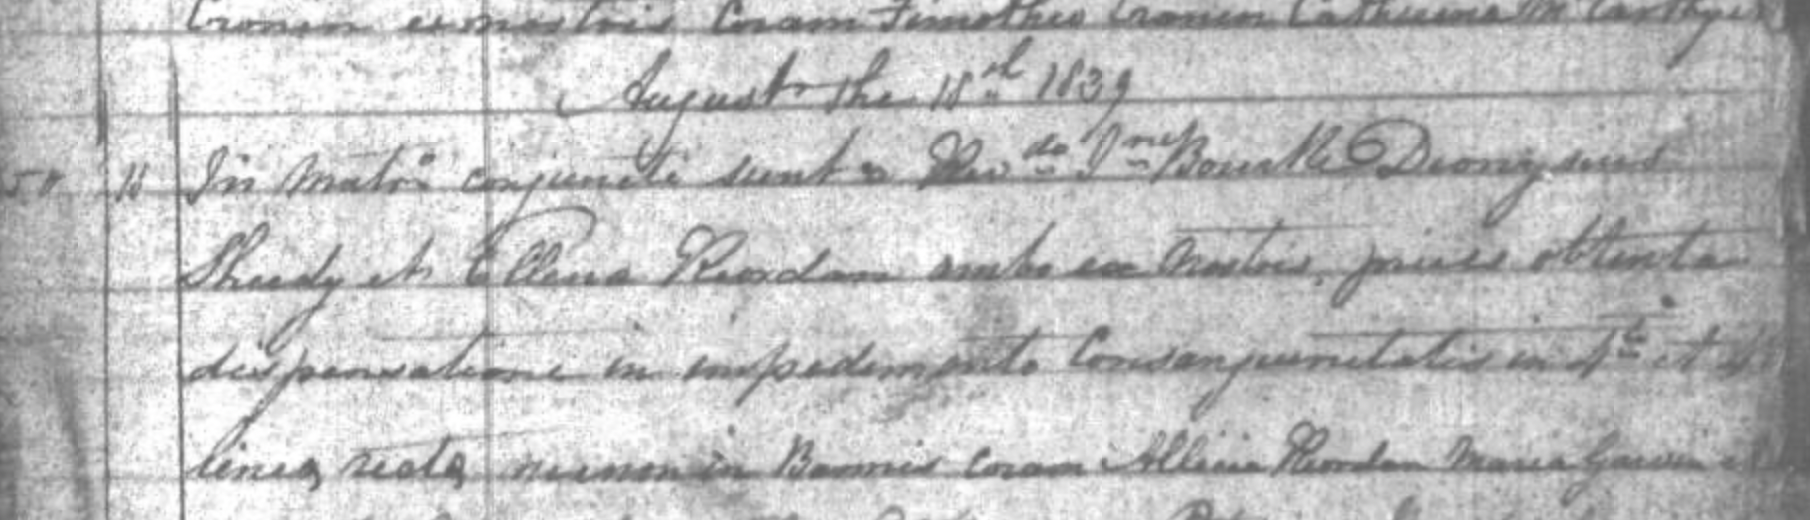 Cronin ex nostris Coram Timotheo Cronin Catherina McCarthy
August the 18th 1839
18 In Matrio conjuncti sunt a Revdo Jne Bourke Dionysius
Sheedy et Ellena Riordan ambo ex nostris, prius obtenta
dispensatione in impedimento Consanguinitatis in 4to et
linea recta necnon in Bannis coram Allicia Riordan Maria